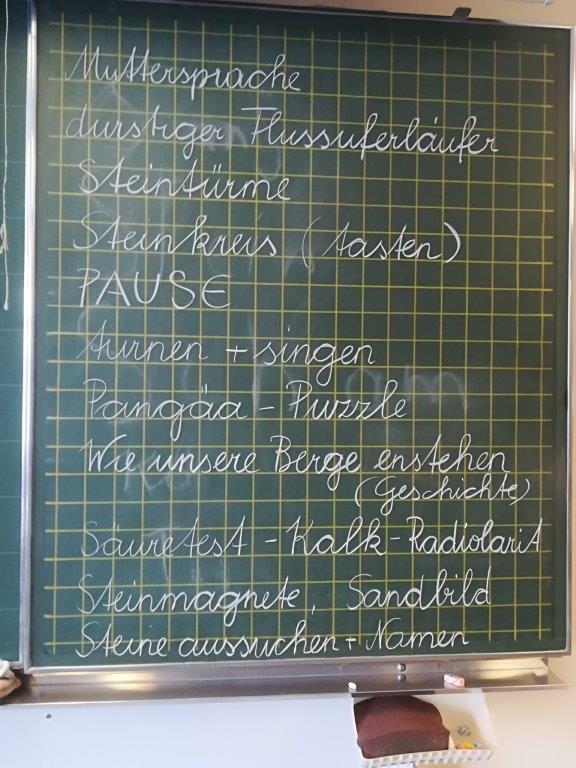 Muttersprache
durstiger Flussuferläufer
Steintürme
Steinkreis (tasten)
PAUSE
turnen + singen
Pangäa - Puzzle
Wie unsere Berge enstehen
(Geschichte)
Säuretest - Kalk - Radiolarit
Steinmagnete, Sandbild
Steine aussuchen + Namen